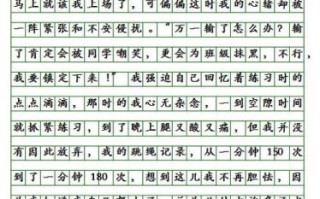 马上就该我上场了，可偏偏这时我的心绪却被
一阵紧张和不安侵扰。“万一输了怎么办？输
了肯定会被同学嘲笑，更会为班级抹黑，不行，
我要镇定下来！”我强迫自己回忆着练习时的
点点滴滴，那时的我心无杂念，一到空隙时间
就抓紧练习，到了晚上腿又酸又痛，但我并没
有因此放弃，我的跳绳记录，从一分钟150次
到了一分钟180次，想到这儿我不再胆怯，因